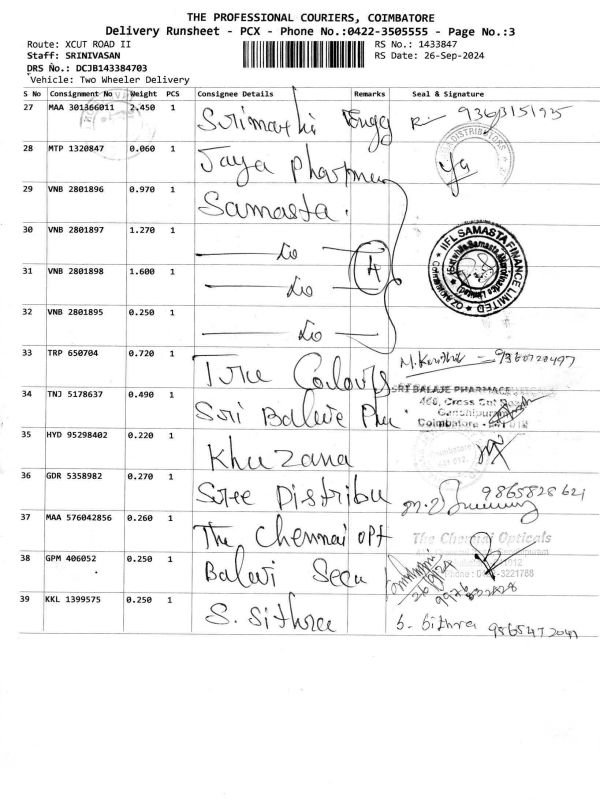 THE PROFESSIONAL COURIERS, COIMBATORE
Delivery Runsheet - PCX - Phone No.:0422-3505555 - Page No.:3
Route: XCUT ROAD II RS No.: 1433847
Staff: SRINIVASAN RS Date: 26-Sep-2024
DRS No.: DCJB143384703
Vehicle: Two Wheeler Delivery
S No Consignment No Weight PCS Consignee Details Remarks Seal & Signature
27 MAA 301366011 2.450 1 Srimathi Engg
28 MTP 1320847 0.060 1 Jaya Pharma
29 VNB 2801896 0.970 1 Samasta.
30 VNB 2801897 1.270 1 Do
IIFL SAMASTA FINANCE LIMITED
31 VNB 2801898 1.600 1 Do 4
32 VNB 2801895 0.250 1 Do
33 TRP 650704 0.720 1 True Colours
34 TNJ 5178637 0.490 1 Sri Balaje Phu
SRI BALAJE PHARMACEUTICALS
468, Cross Cut Road
Gandhipuram
Coimbatore - 641 012
35 HYD 95298402 0.220 1 Khuzana
36 GDR 5358982 0.270 1 Sree Distribu 9865828621
37 MAA 576042856 0.260 1 The Chennai Opt
The Chennai Opticals
38 GPM 406052 0.250 1 Balavi Secu 26/9/24
39 KKL 1399575 0.250 1 S. Sithra S. Sithra